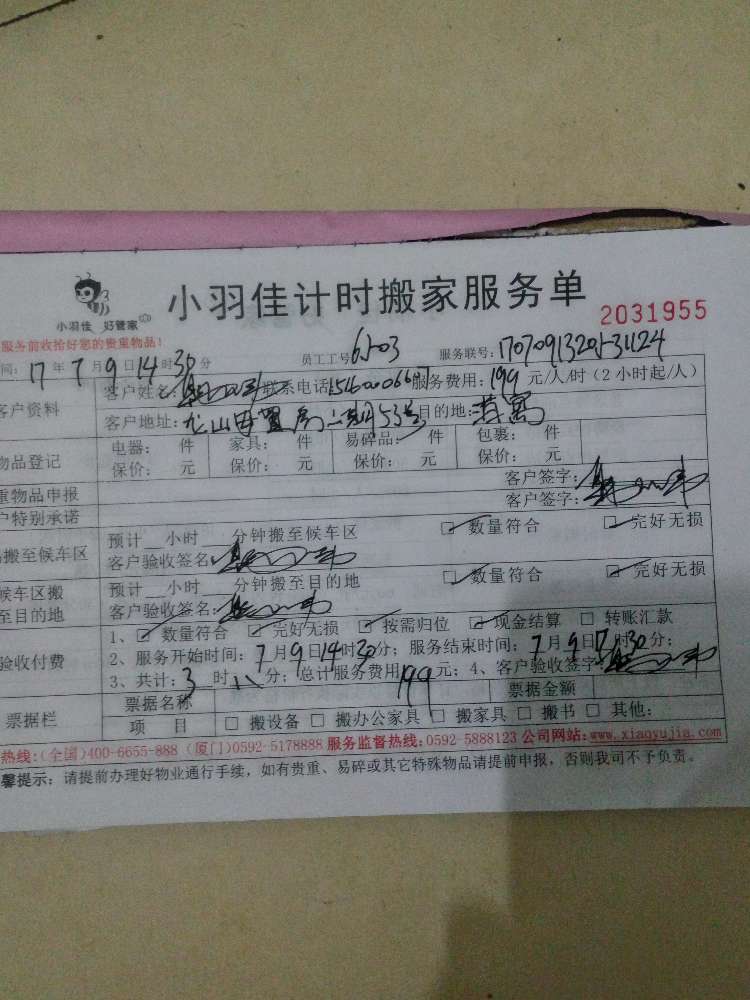 小羽佳 好管家
小羽佳计时搬家服务单
2031955
服务前收拾好您的贵重物品!
间: 17年 7月 9日 14时 30分 员工工号 服务联号:
客户资料 客户姓名: 联系电话 服务费用: 199 元/人/时 (2小时起/人)
客户地址: 目的地:
物品登记 电器: 件 家具: 件 易碎品: 件 包裹: 件
保价: 元 保价: 元 保价: 元 保价: 元
重物品申报 客户签字:
户特别承诺 客户签字:
搬至候车区 预计__小时__分钟搬至候车区 数量符合 完好无损
客户验收签名:
候车区搬至目的地 预计__小时__分钟搬至目的地 数量符合 完好无损
客户验收签名:
验收付费 1、 数量符合 完好无损 按需归位 现金结算 转账汇款
2、服务开始时间: 7月 9日 14时 30分; 服务结束时间: 7月 9日 17时 30分;
3、共计: 3 时 分; 总计服务费用 199 元; 4、客户验收签字:
票据栏 票据名称 票据金额
项 目 搬设备 搬办公家具 搬家具 搬书 其他:
热线:(全国)400-6655-888 (厦门)0592-5178888 服务监督热线:0592-5888123 公司网站:www.xiaoyujia.com
馨提示: 请提前办理好物业通行手续, 如有贵重、易碎或其它特殊物品请提前申报, 否则我司不予负责。